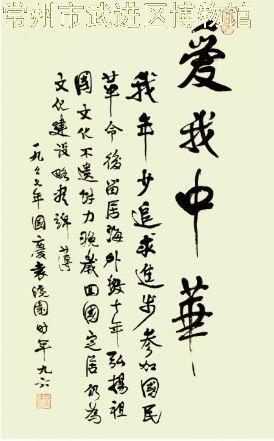 常州市武进区博物馆
愛我中華
我年少追求進步参加國民
革命後留居海外數十年弘揚祖
國文化不遺餘力晚歲回國定居仍为
文化建設略盡綿薄
一九九六年國慶袁曉園时年九六